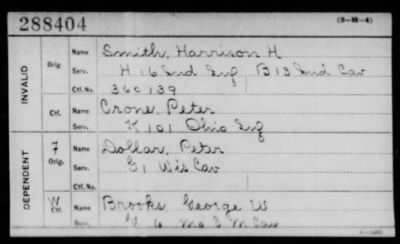 288404
(3-M-4)
INVALID
Orig. Name Smith, Harrison H
Serv. H 16 Ind Inf B 13 Ind Cav
Ctf. No. 360139
Ctf. Name Crone, Peter
Serv. K 101 Ohio Inf
DEPENDENT
F Orig. Name Dollar, Peter
Serv. G 1 Wis Cav
Ctf. No.
W Ctf. Name Brooks George W
Serv. 6 Mo S M Cav